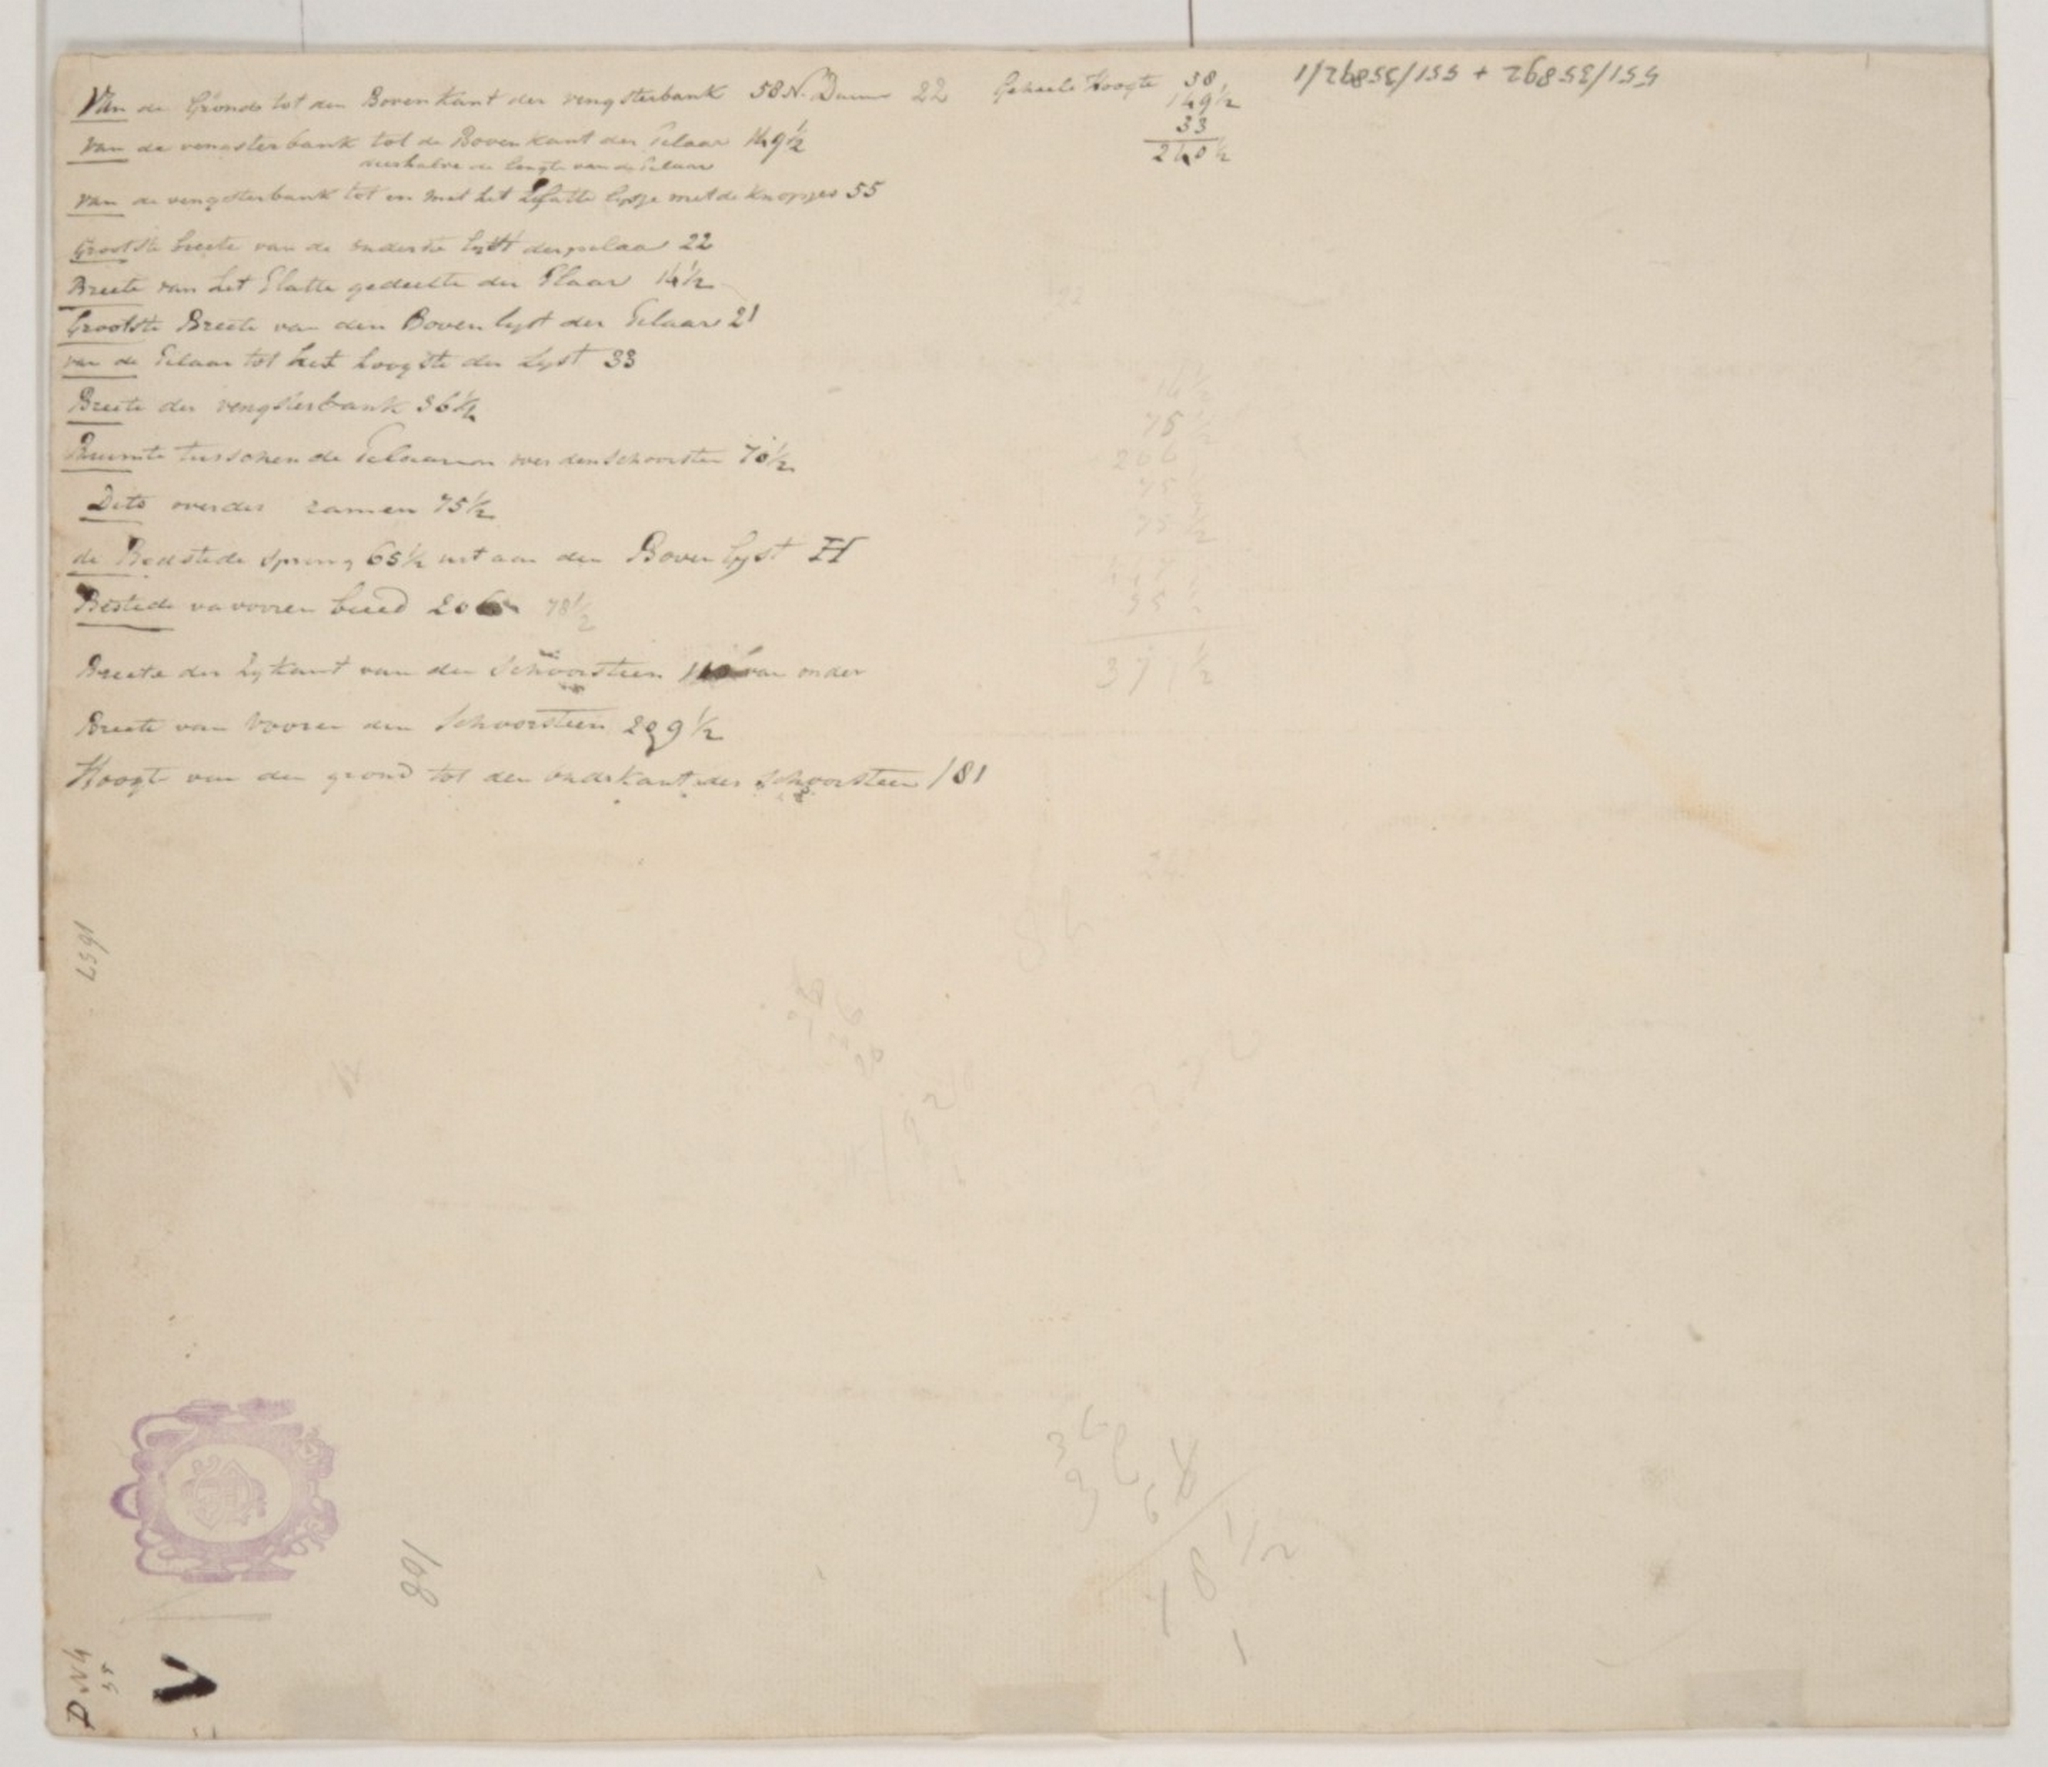 Van de Grondt tot den Bovenkant der vengsterbank 58 N. Duim 22
van de vengsterbank tot de Bovenkant der Pilaar 149½
deshalve de lengte van de Pilaar
van de vengsterbank tot en met het platte lystje met de knopjes 55
Grootste breete van de onderste lyst der pilaar 22
Breete van het Platte gedeelte der Plaar 14½
Grootste Breete van den Boven lyst der Pilaar 21
van de Pilaar tot het hoogste der Lyst 33
Breete der vengsterbank 36½
Ruimte tusschen de Pilaaren over den schoorsten 70½
Dito over der ramen 75½
de Bedstede spring 65½ uit aan den Boven lyst H
Bestede va vooren breed 206 78½
Breete der Zykant van den Schoorsteen van onder
Breete van Vooren den Schoorsteen 209½
Hoogte van den grond tot den onderkant der Schoorsteen 181
Geheele Hoogte 58
149½
33
240½
551/35892 + 551/35892/1
14½
75½
206
75
75½
35½
377½
1657
168
18½
V